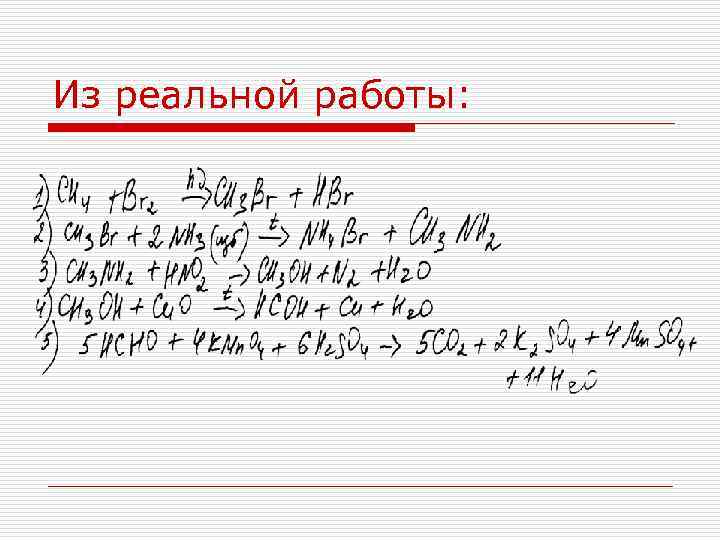 Из реальной работы:
1) CH4 + Br2 hν→ CH3Br + HBr
2) CH3Br + 2 NH3 (изб) t→ NH4Br + CH3NH2
3) CH3NH2 + HNO2 → CH3OH + N2 + H2O
4) CH3OH + CuO t→ HCOH + Cu + H2O
5) 5HCHO + 4KMnO4 + 6H2SO4 → 5CO2 + 2K2SO4 + 4MnSO4 +
+ 11H2O